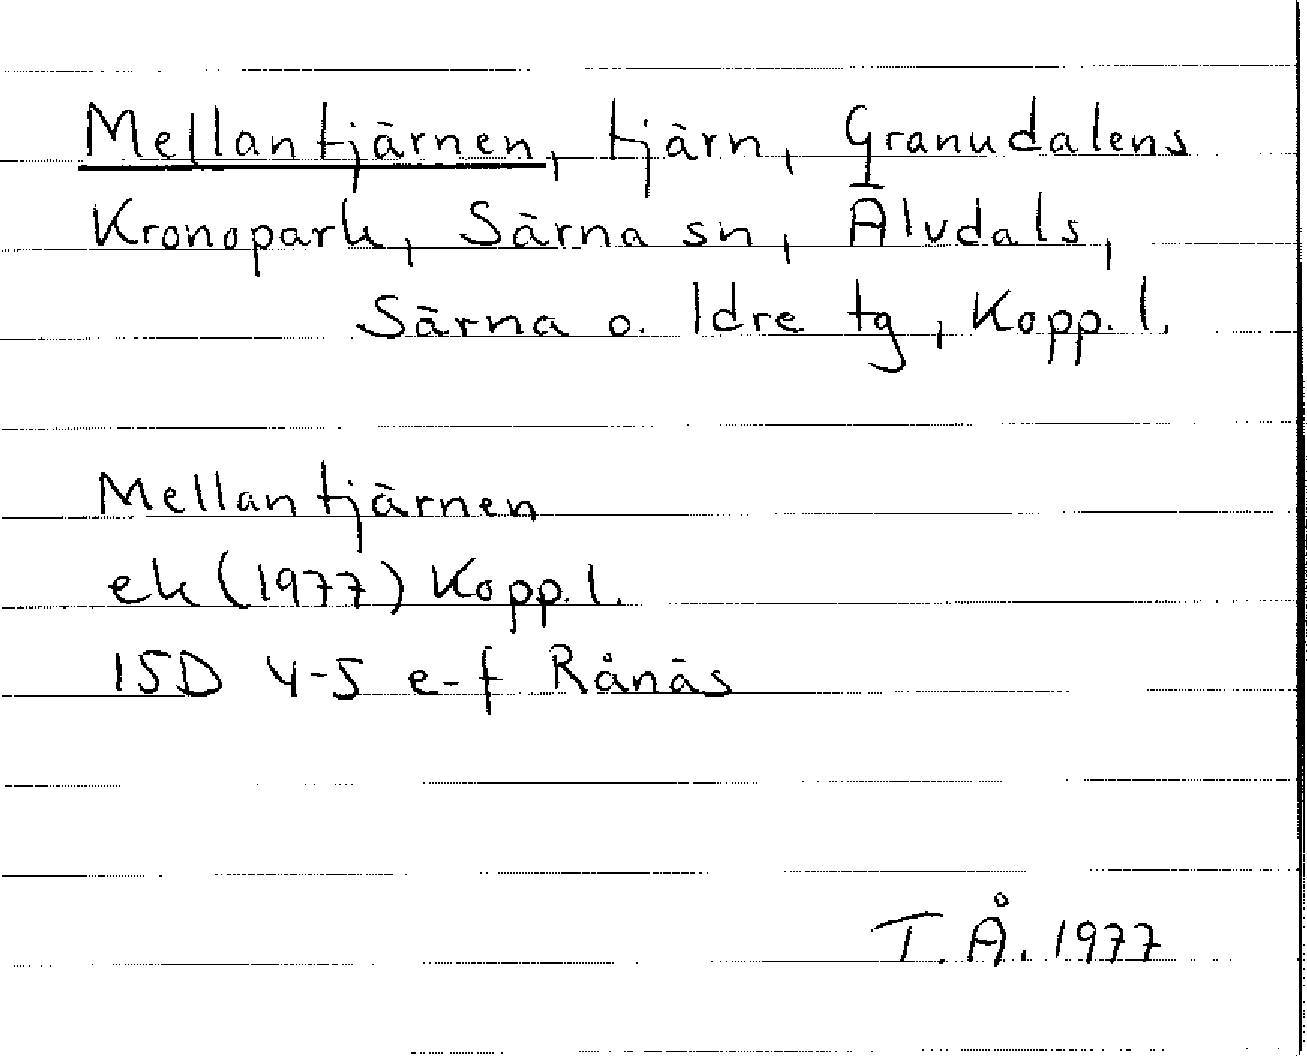 Mellantjärnen, tjärn, Granudalens
Kronopark, Särna sn, Älvdals,
Särna o. Idre tg, Kopp. l.
Mellantjärnen
ek (1977) Kopp. l.
15D 4-5 e-f Rånäs
T. Å. 1977